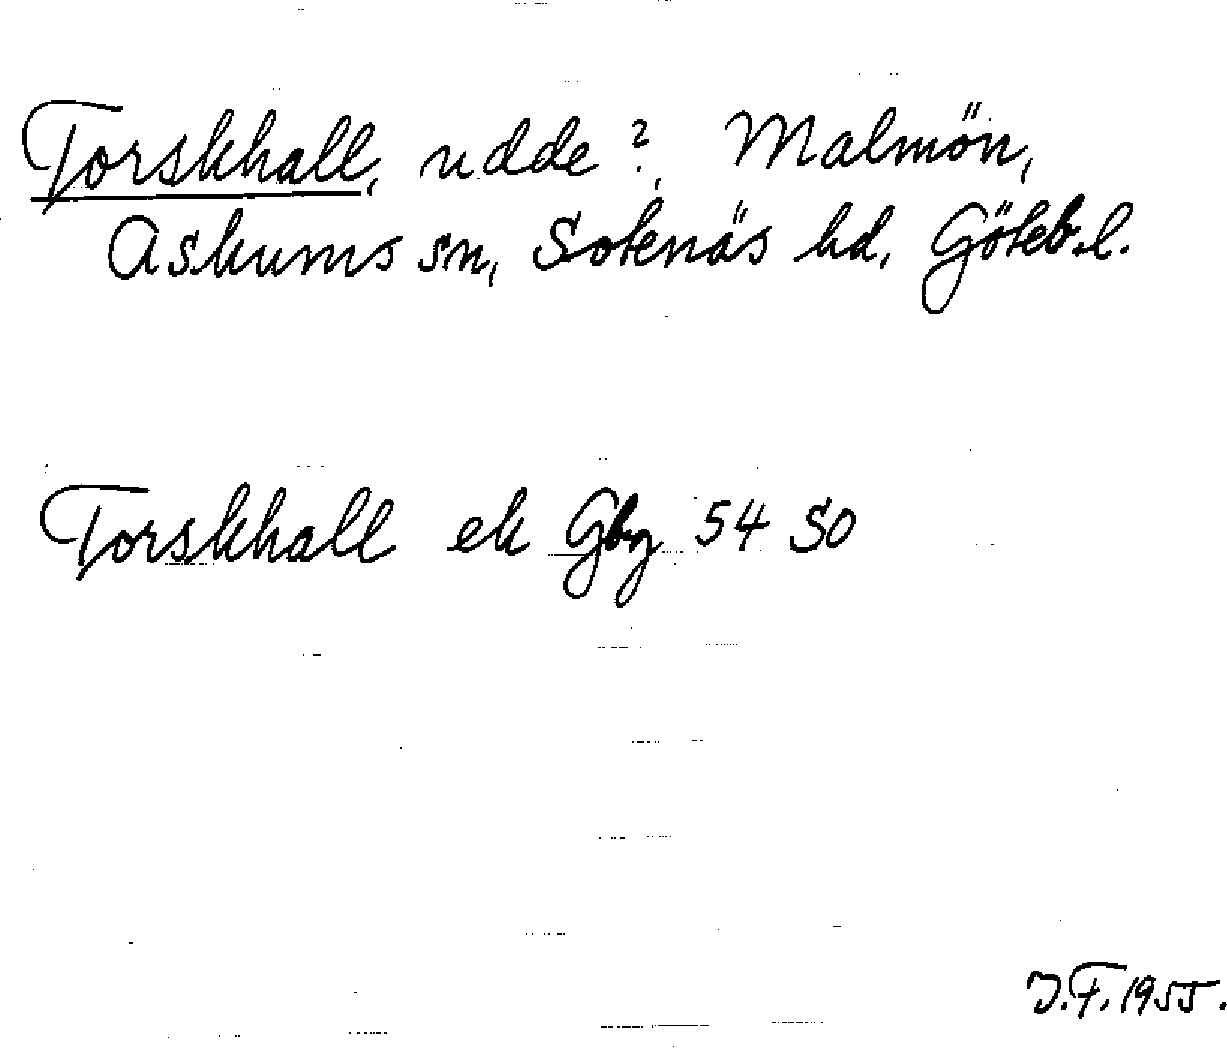 Torskhall, udde?, Malmön,
Askums sn, Sotenäs hd, Göteb.l.
Torskhall ek Gbg 54 SO
J.F. 1955.